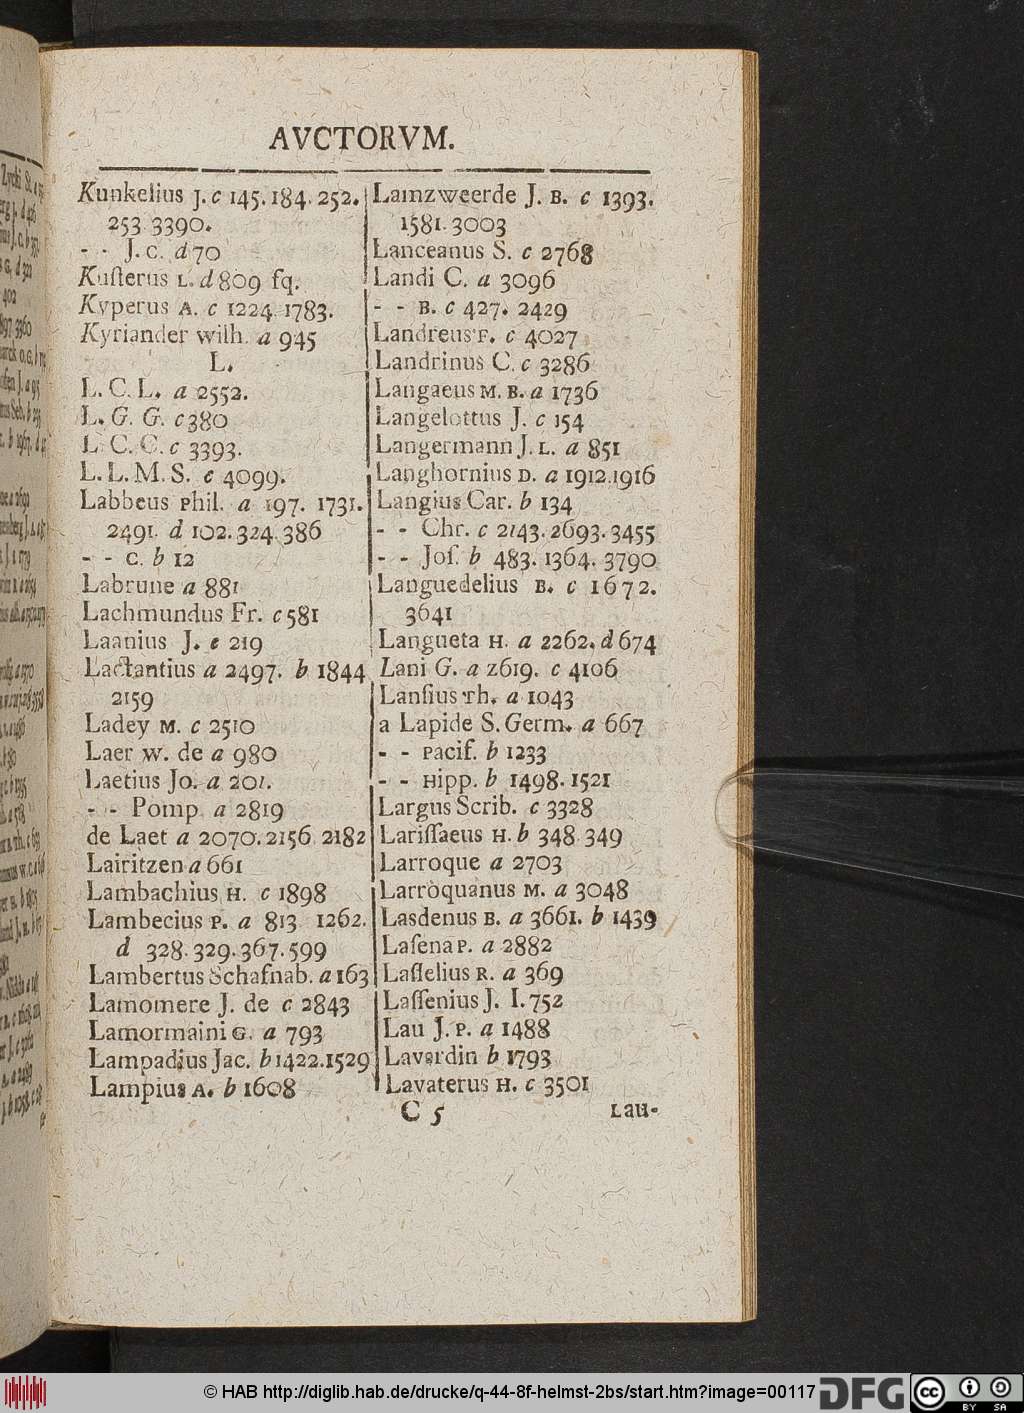 AVCTORVM.
Kunkelius J. c 145. 184. 252.
253 3390.
- - J. C. d 70
Kuſterus L. d 809 ſq.
Kyperus A. c 1224. 1783.
Kyriander Wilh. a 945
L.
L. C. L. a 2552.
L. G. G. c 380
L. C. C. c 3393.
L. L. M. S. c 4099.
Labbeus Phil. a 197. 1731.
2491. d 102. 324. 386
- - C. b 12
Labrune a 881
Lachmundus Fr. c 581
Laanius J. c 219
Lactantius a 2497. b 1844
2159
Ladey M. c 2510
Laer W. de a 980
Laetius Jo. a 201.
- - Pomp a 2819
de Laet a 2070. 2156 2182
Lairitzen a 661
Lambachius H. c 1898
Lambecius P. a 813 1262.
d 328. 329. 367. 599
Lambertus Schafnab. a 163
Lamomere J. de c 2843
Lamormaini G. a 793
Lampadius Jac. b 1422. 1529
Lampius A. b 1608
Lamzweerde J. B. c 1393.
1581. 3003
Lanceanus S. c 2768
Landi C. a 3096
- - B. c 427. 2429
Landreus F. c 4027
Landrinus C. c 3286
Langaeus M. B. a 1736
Langelottus J. c 154
Langermann J. L. a 851
Langhornius D. a 1912. 1916
Langius Car. b 134
- - Chr. c 2143. 2693. 3455
- - Joſ. b 483. 1364. 3790
Languedelius B. c 1672.
3641
Langueta H. a 2262. d 674
Lani G. a 2619. c 4106
Lanſius Th. a 1043
a Lapide S. Germ. a 667
- - Pacif. b 1233
- - Hipp. b 1498. 1521
Largus Scrib. c 3328
Lariſſaeus H. b 348 349
Larroque a 2703
Larroquanus M. a 3048
Lasdenus B. a 3661. b 1439
Laſena P. a 2882
Laſſelius R. a 369
Laſſenius J. I. 752
Lau J. P. a 1488
Lavardin b 1793
Lavaterus H. c 3501
C 5 Lau-
© HAB http://diglib.hab.de/drucke/q-44-8f-helmst-2bs/start.htm?image=00117
DFG
cc BY SA